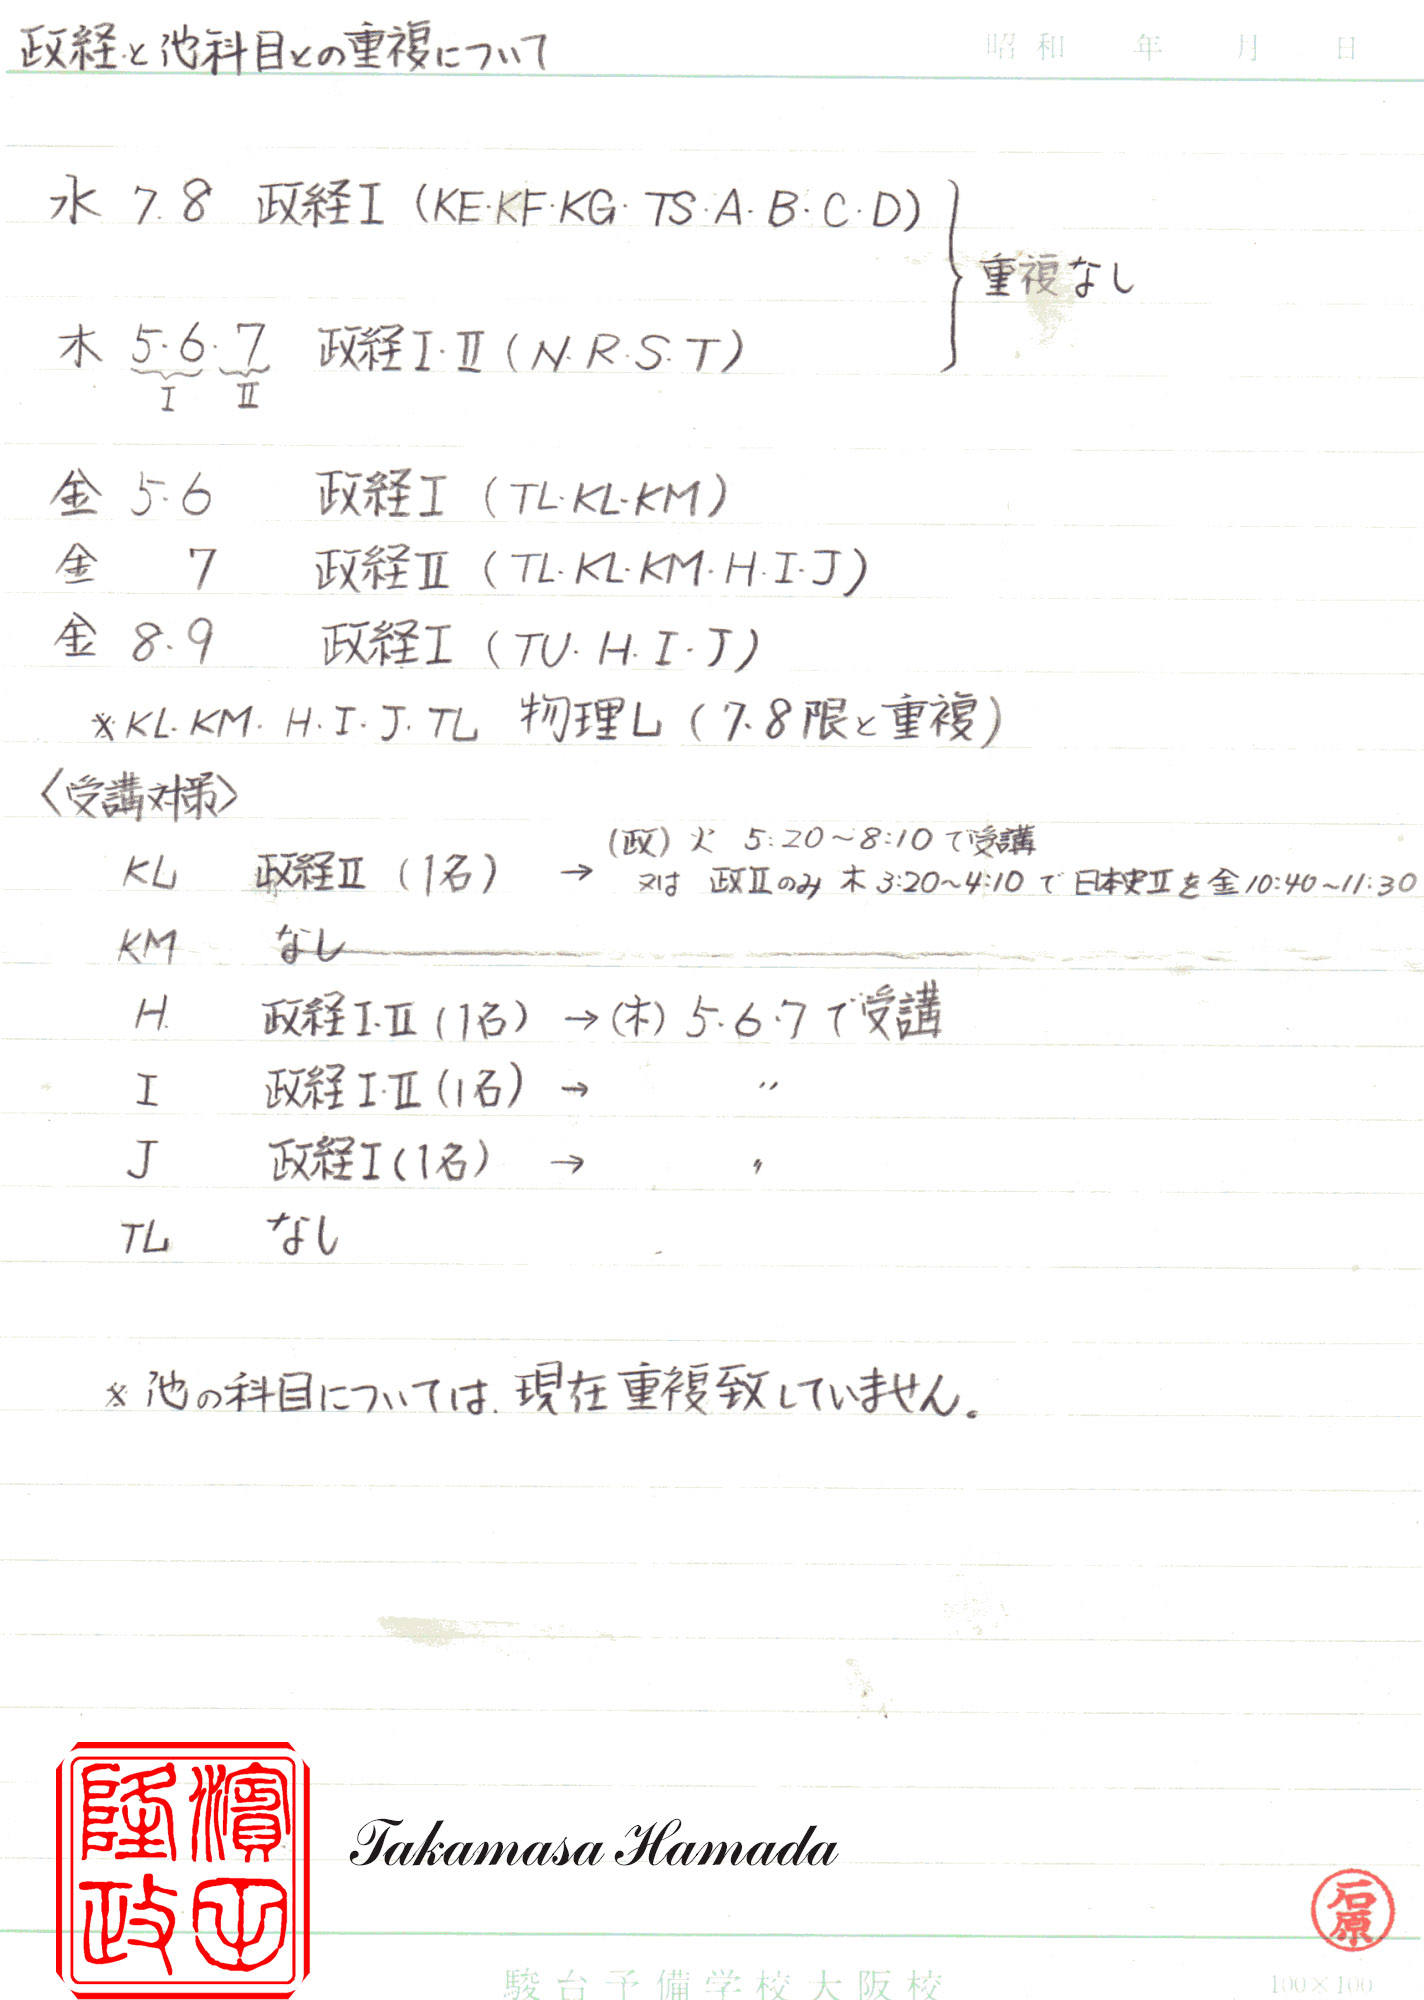 昭和 年 月 日
政経と池科目との重複について
水 7.8 政経Ⅰ (KE・KF・KG・TS・A・B・C・D)
重複なし
木 5・6・7 政経Ⅰ・Ⅱ (N・R・S・T)
Ⅰ Ⅱ
金 5・6 政経Ⅰ (TL・KL・KM)
金 7 政経Ⅱ (TL・KL・KM・H・I・J)
金 8・9 政経Ⅰ (TU・H・I・J)
※KL・KM・H・I・J・TL 物理L (7.8限と重複)
〈受講対策〉
(政) 火 5:20~8:10で受講
KL 政経Ⅱ (1名) → 又は 政Ⅱのみ 木3:20~4:10で日本史Ⅱを金10:40~11:30
KM なし
H. 政経Ⅰ・Ⅱ (1名) → (木) 5・6・7で受講
I 政経Ⅰ・Ⅱ (1名) → 〃
J 政経Ⅰ (1名) → 〃
TL なし
※池の科目については、現在重複致していません。
濵田隆政
Takamasa Hamada
石原
駿台予備学校大阪校
100×100